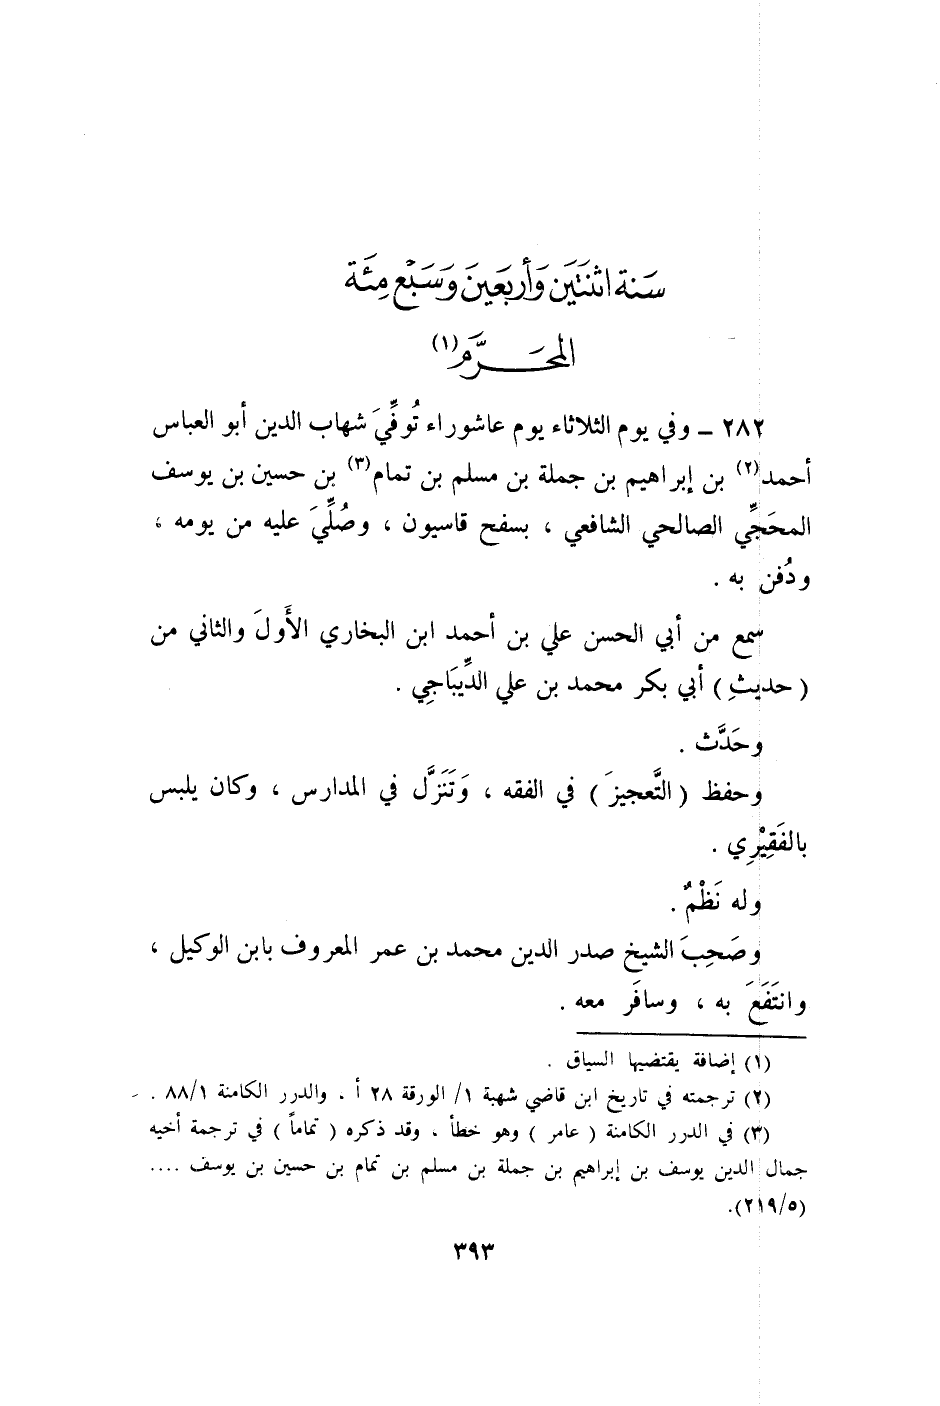 سَنة اثنَتَين وَأربَعينَ وَسَبْع مِئَة
المحَرَّم (١)
٢٨٢ ـ وفي يوم الثلاثاء يوم عاشوراء تُوفِّيَ شهاب الدين أبو العباس
أحمد(٢) بن إبراهيم بن جملة بن مسلم بن تمام(٣) بن حسين بن يوسف
المحَجِّي الصالحي الشافعي ، بسفح قاسيون ، وصُلِّيَ عليه من يومه ،
ودُفن به .
سمع من أبي الحسن علي بن أحمد ابن البخاري الأَولَ والثاني من
( حديثِ ) أبي بكر محمد بن علي الدِّيبَاجِي .
وحَدَّث .
وحفظ ( التَّعجيزَ ) في الفقه ، وَتَنَزَّل في المدارس ، وكان يلبس
بالفَقِيْرِي .
وله نَظْمٌ .
وصَحِبَ الشيخ صدر الدين محمد بن عمر المعروف بابن الوكيل ،
وانتَفَعَ به ، وسافَر معه .
(١) إضافة يقتضيها السياق .
(٢) ترجمته في تاريخ ابن قاضي شهبة ١/ الورقة ٢٨ أ ، والدرر الكامنة ٨٨/١ .
(٣) في الدرر الكامنة ( عامر ) وهو خطأ ، وقد ذكره ( تماماً ) في ترجمة أخيه
جمال الدين يوسف بن إبراهيم بن جملة بن مسلم بن تمام بن حسين بن يوسف ....
(٢١٩/٥).
٣٩٣